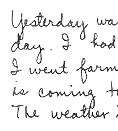 Yesterday wa
day. I had
I went farm
is coming t
The weather